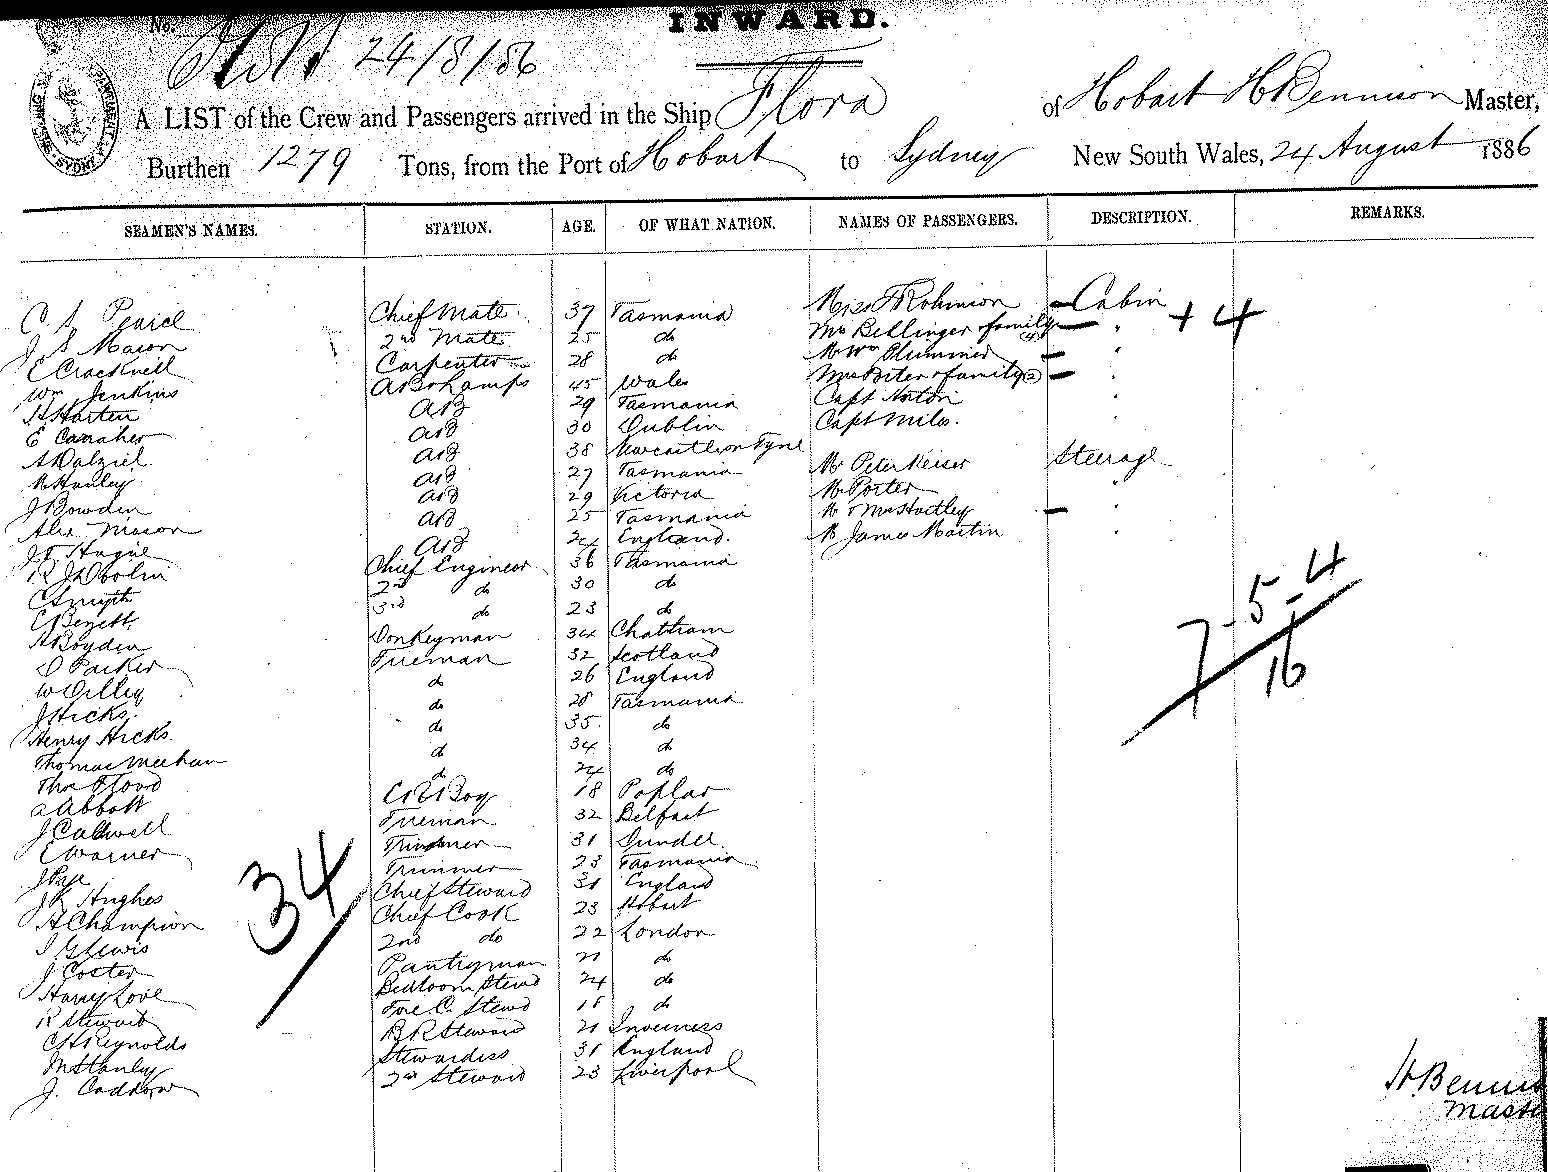 INWARD.
No.
24/8/86
A LIST of the Crew and Passengers arrived in the Ship Flora of Hobart H Bennison Master,
Burthen 1279 Tons, from the Port of Hobart to Sydney New South Wales, 24 August 1886
SEAMEN'S NAMES. STATION. AGE. OF WHAT NATION. NAMES OF PASSENGERS. DESCRIPTION. REMARKS.
C A Pearce Chief Mate 37 Tasmania Miss Robinson Cabin + 4
J S Mason 2nd Mate 25 do Mrs Bellinger & family (4) "
E Cracknell Carpenter 28 do Mr Wm Plummer "
Wm Jenkins AB & Lamps 45 Wales Mrs Porter & family (2) "
Harten AB 29 Tasmania Capt Norton "
E Carraher AB 30 Dublin Capt Miles. "
A Dalziel AB 38 Newcastle on Tyne
Hanley AB 27 Tasmania Mr Peter Keiser Steerage
J Bowden AB 29 Victoria Mr Porter "
Alex Mason AB 25 Tasmania Mr & Mrs Hartley "
J T Hague AB 24 England. Mr James Martin "
R J Doolin Chief Engineer 36 Tasmania
C Smyth 2nd do 30 do
C 3rd do 23 do
A Boyden Donkeyman 34 Chatham
D Parker Fireman 32 Scotland
W Dilley do 26 England
J Hicks. do 28 Tasmania
Henry Hicks. do 35 do
Thomas Meehan do 34 do
Thos Flood do 24 do
A Abbott Boy 18 Poplar
J Caldwell Fireman 32 Belfast
E Warner Trimmer 31 Dundee
J Trimmer 23 Tasmania
J R Hughes Chief Steward 31 England
A Champion Chief Cook 23 Hobart
G Lewis 2nd do 22 London
J Coster Pantryman 21 do
Harry Love Bedroom Stewd 24 do
R Stewart Fore C. Stewd 18 do
C H Reynolds B R Steward 21 Inverness
M Stanley Stewardess 31 England
J. Caddow 2nd Steward 23 Liverpool
34
7 - 5 - 4
16
H. Bennis
Maste